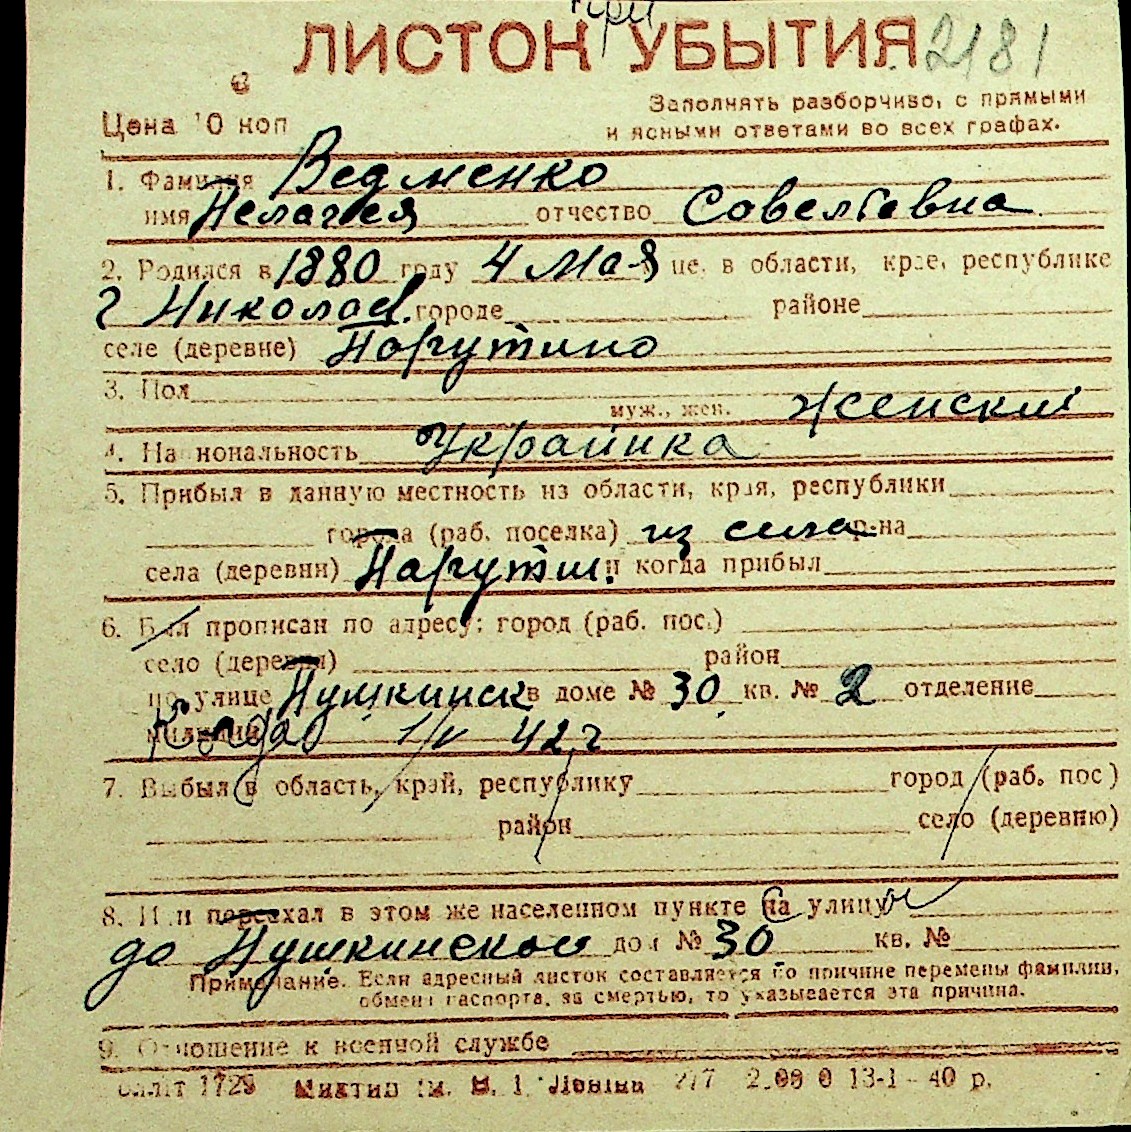 при
ЛИСТОК УБЫТИЯ 2181
Заполнять разборчиво, с прямыми
Цена 10 коп и ясными ответами во всех графах.
1. Фамилия Ведменко
имя Пелагея отчество Совельевна
2. Родился в 1880 году 4 мая це. в области, крае, республике
г Николаев. городе районе
селе (деревне) Парутино
3. Пол
муж., жен. женский
4. Национальность Украинка
5. Прибыл в данную местность из области, края, республики
города (раб. поселка) из села р-на
села (деревни) Парутин. и когда прибыл
6. Был прописан по адресу: город (раб. пос.)
село (деревня) район
по улице Пушкинск в доме № 30 кв. № 2 отделение
милиции Когда 1/V 42 г
7. Выбыл в область, край, республику город (раб. пос)
район село (деревню)
8. Или переехал в этом же населенном пункте на улицу
до Пушкинской дом № 30 кв. №
Примечание. Если адресный листок составляется по причине перемены фамилии,
обмена паспорта, за смертью, то указывается эта причина.
9. Отношение к военной службе
1729 им. В. І. Леніна 277 13-І-40 р.